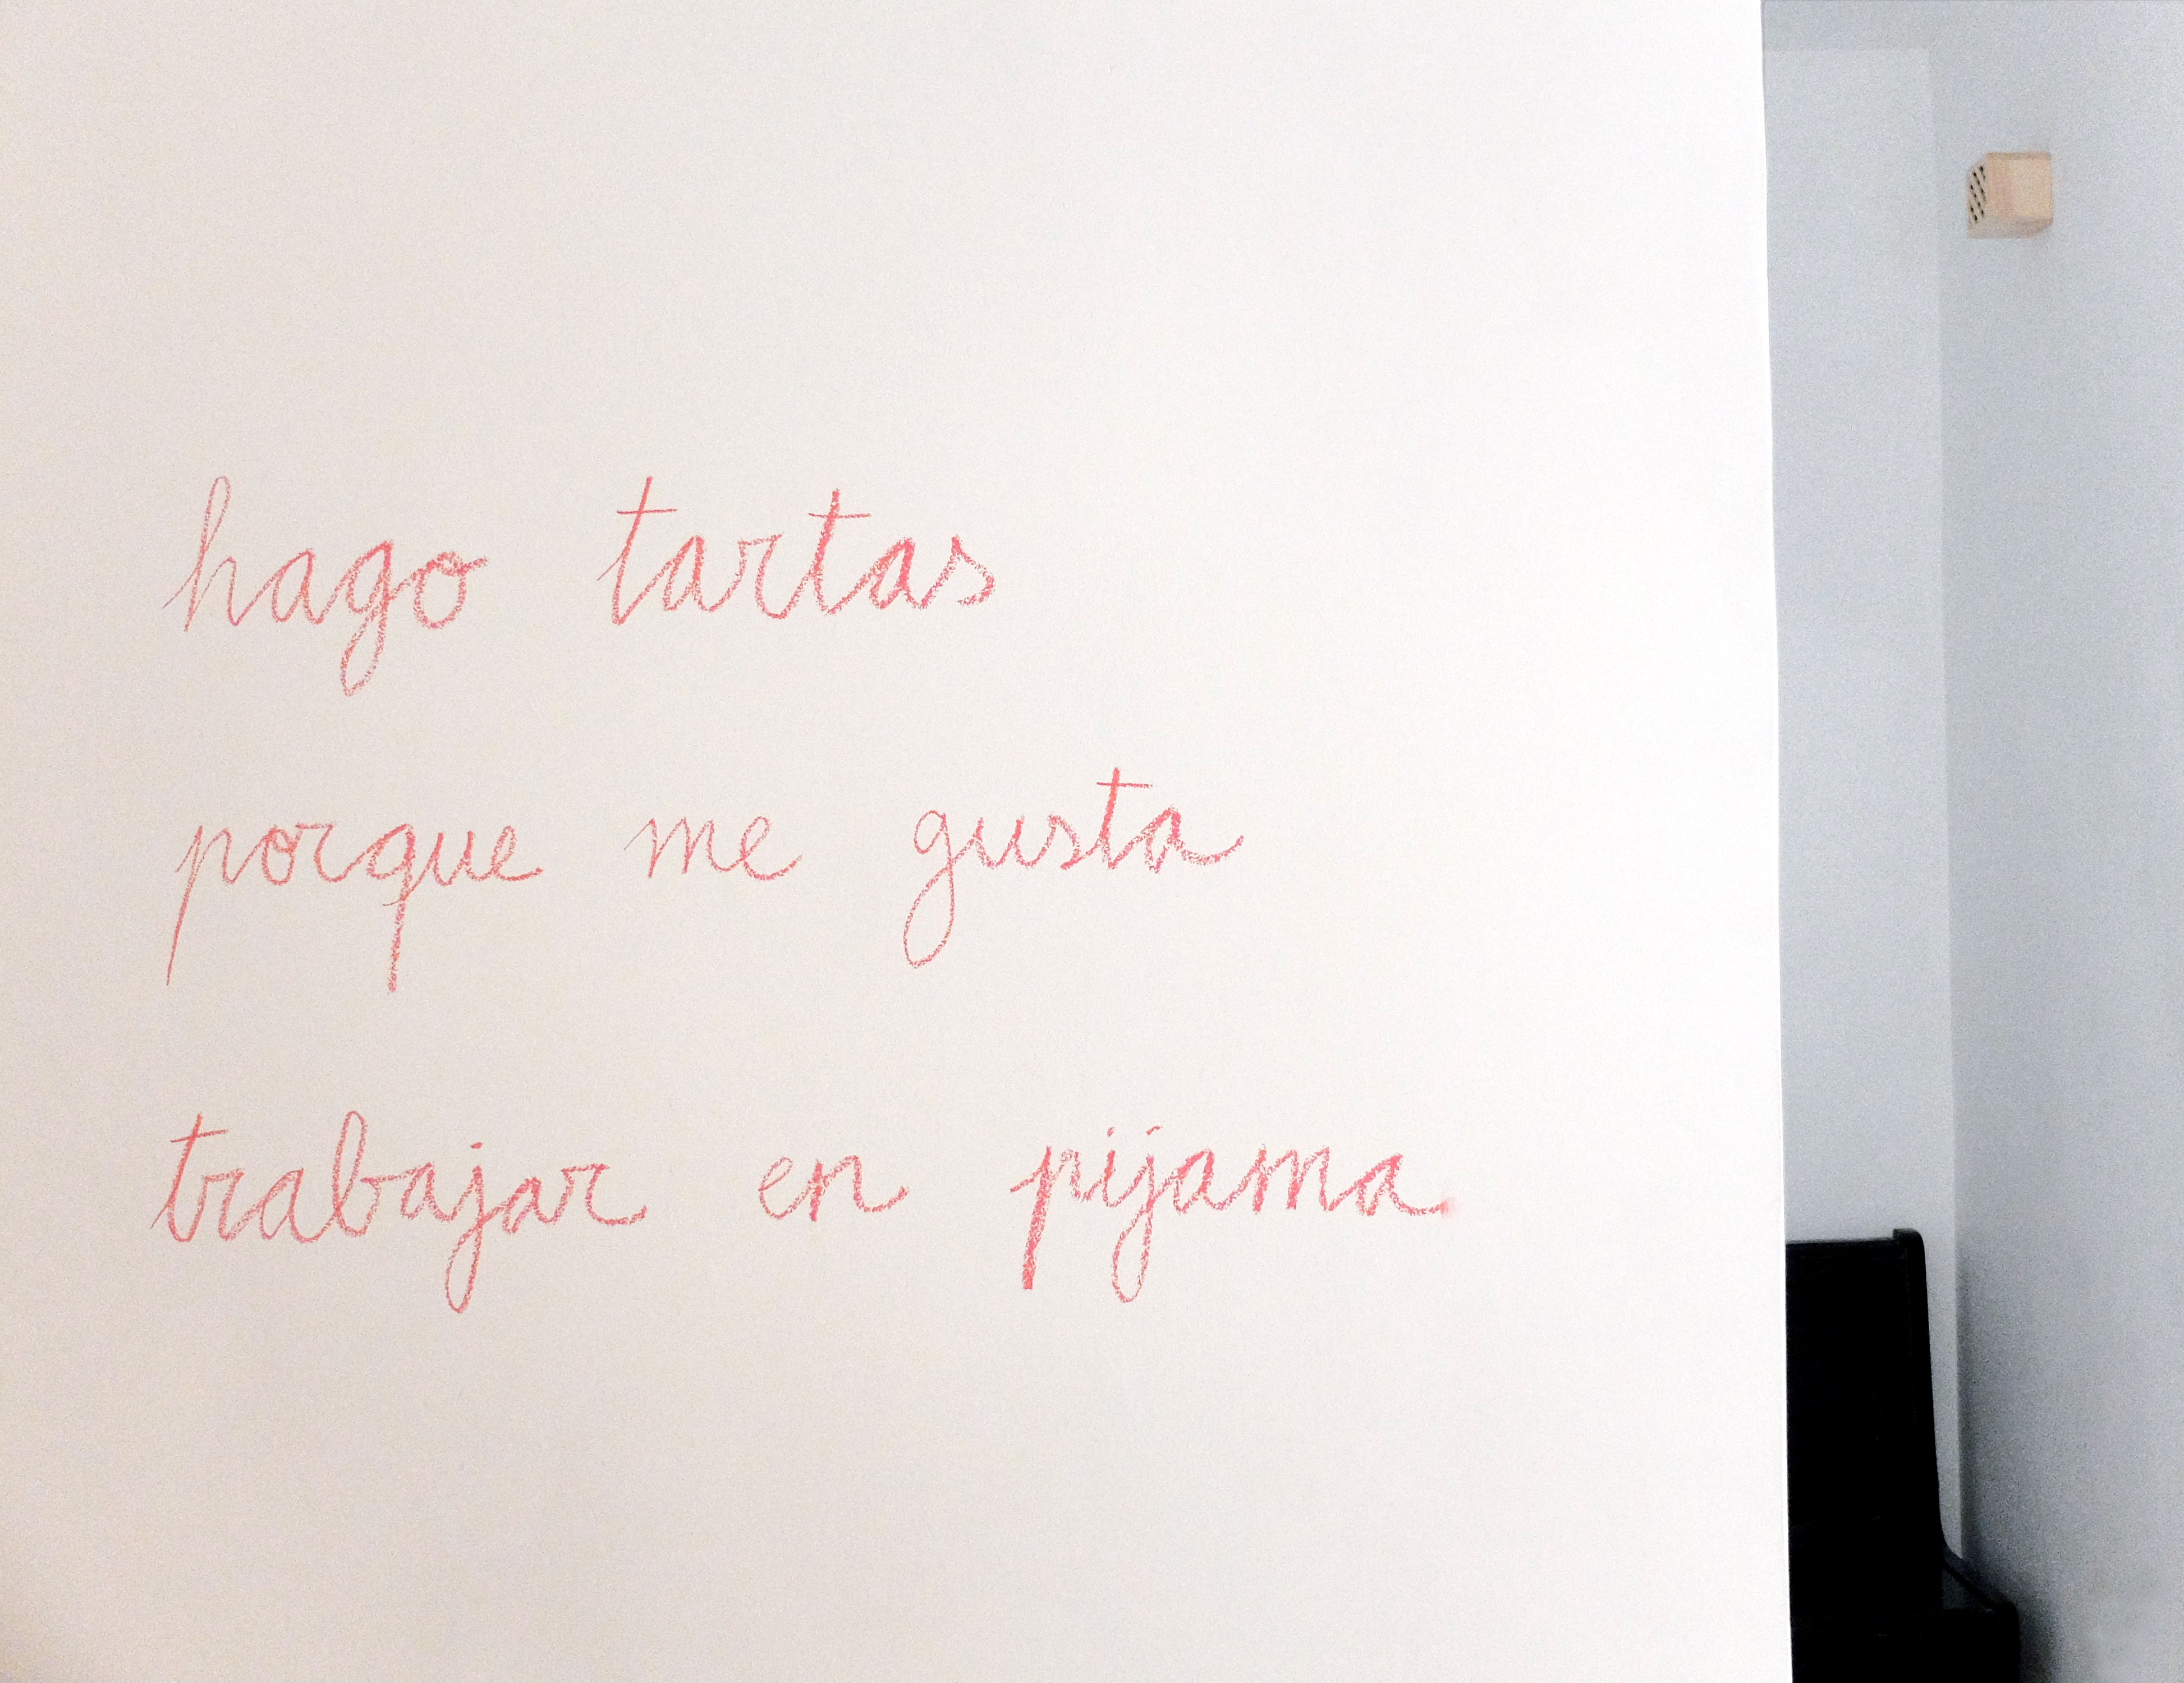 hago tartas
porque me gusta
trabajar en pijama